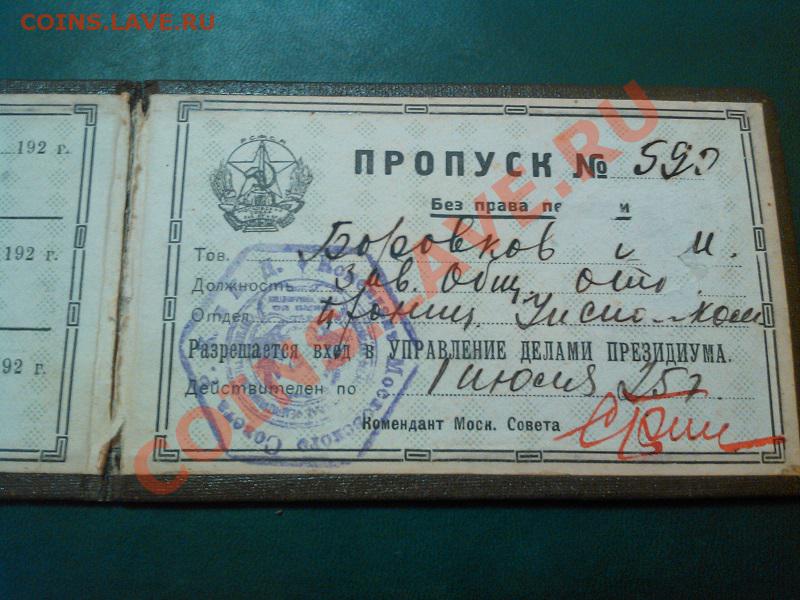 COINS.LAVE.RU
192 г.
192 г.
92 г.
РСФСР
ПРОПУСК № 590
Без права пе и
Тов. Боровков и.
Должность Зав. Общ. отд.
Отдел Исполком
Разрешается вход в УПРАВЛЕНИЕ ДЕЛАМИ ПРЕЗИДИУМА.
Действителен по 1 июля 25 г.
Комендант Моск. Совета
Московского Совета
COINS.LAVE.RU